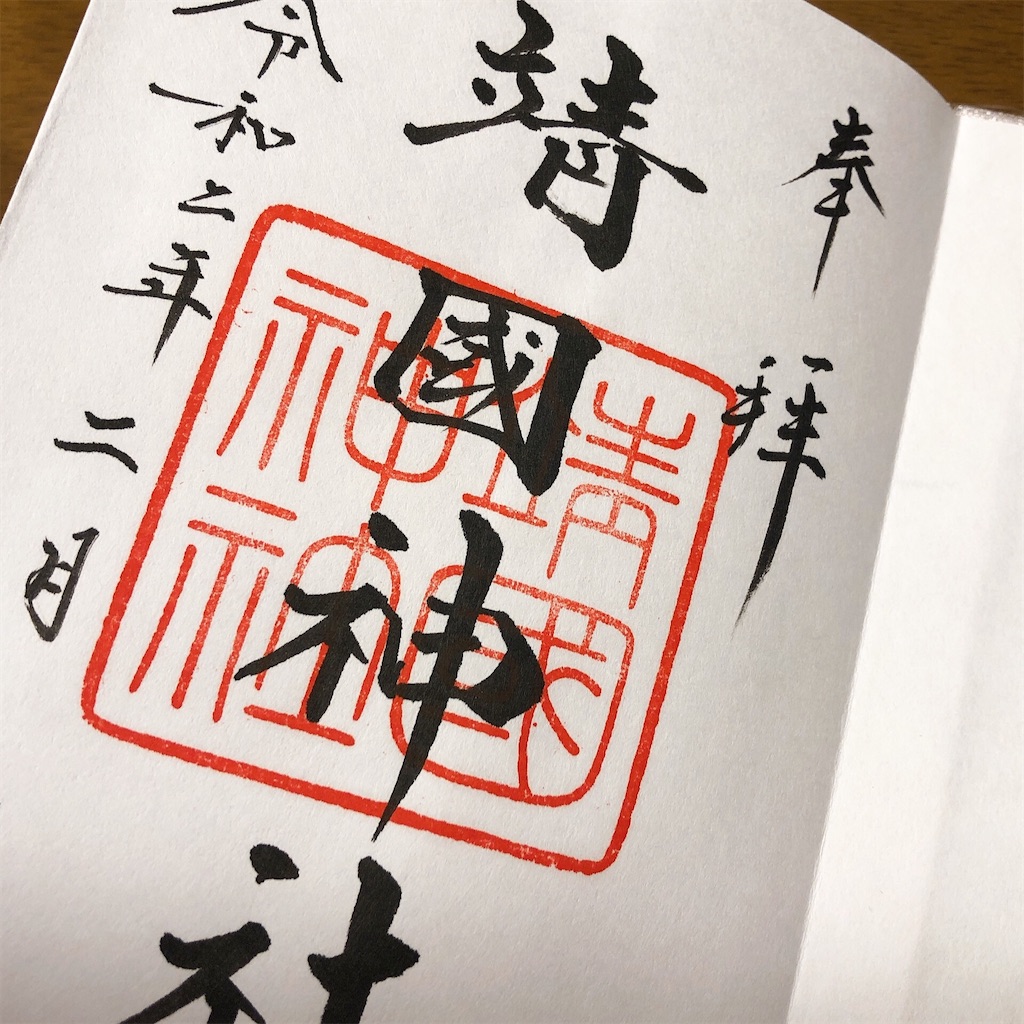 奉拝
靖國神社
靖國
神社
令和二年二月